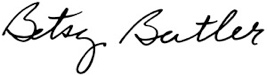 Betsy Butler